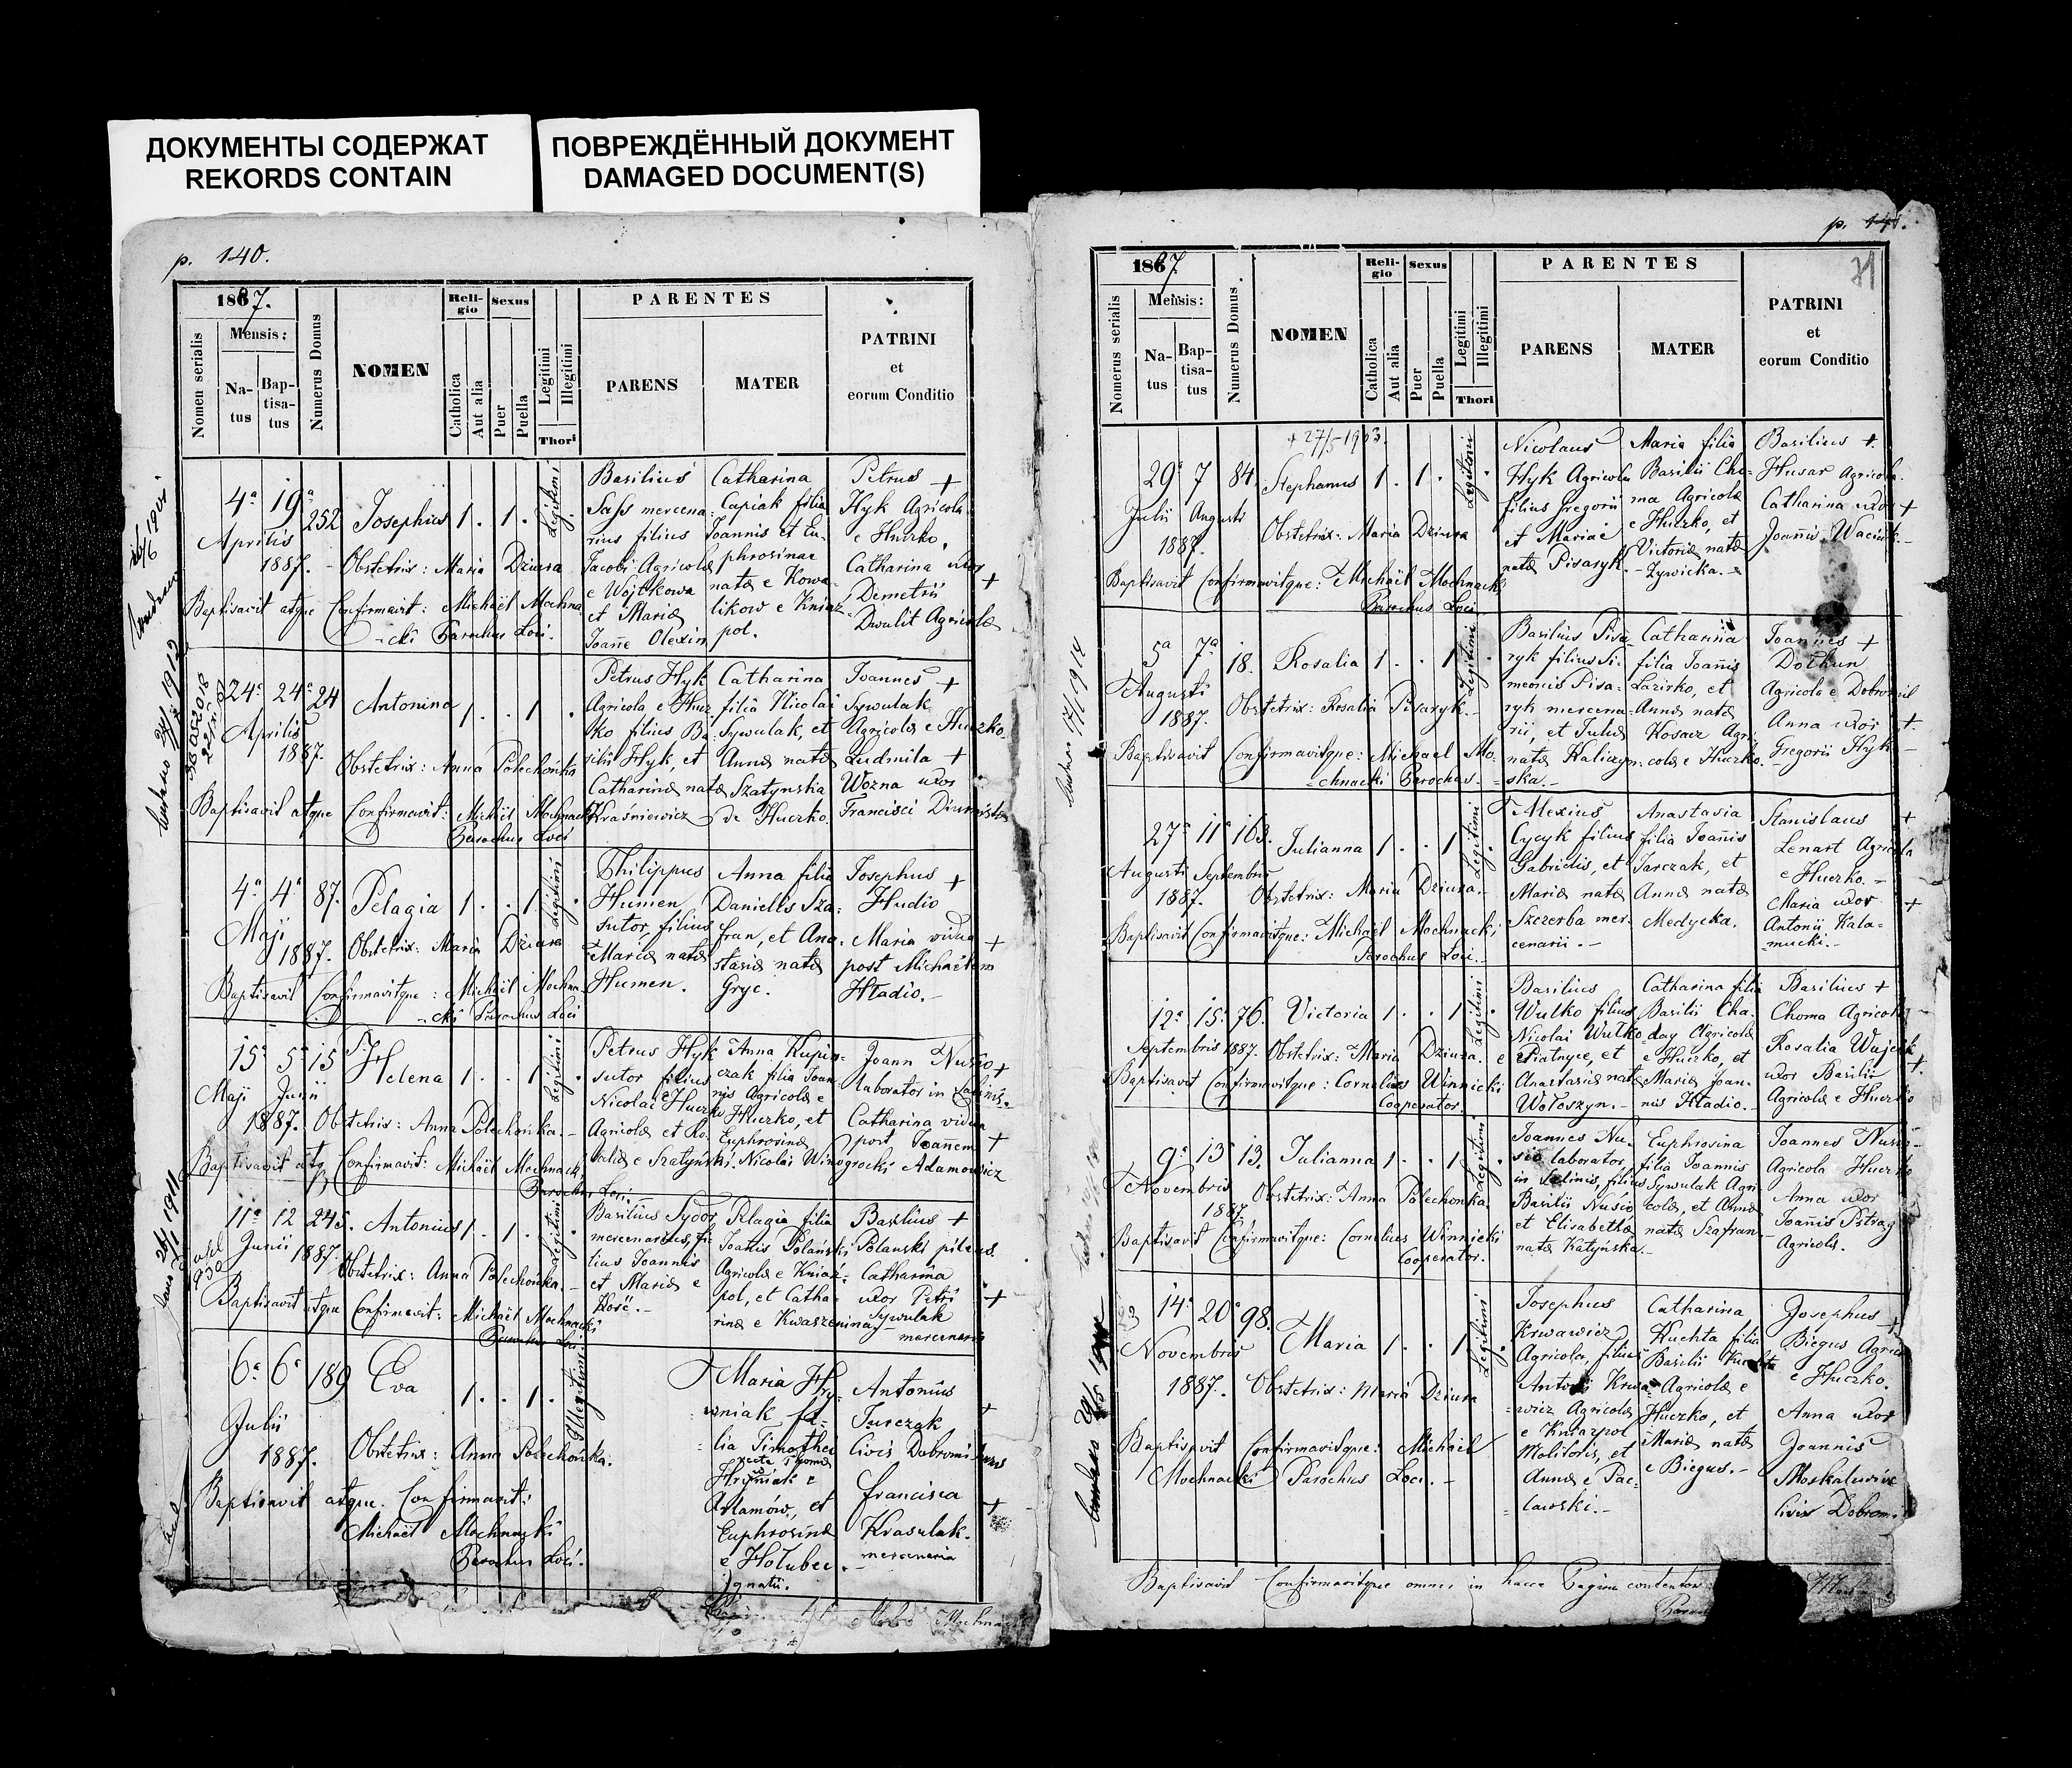 ДОКУМЕНТЫ СОДЕРЖАТ
REKORDS CONTAIN
ПОВРЕЖДЁННЫЙ ДОКУМЕНТ
DAMAGED DOCUMENT(S)
p. 140.
1887.
Nomen serialis
Mensis:
Na-
tus
Bap-
tisa-
tus
Numerus Domus
NOMEN
Reli-
gio
Catholica
Aut alia
Sexus
Puer
Puella
Legitimi
Illegitimi
Thori
PARENTES
PARENS
MATER
PATRINI
et
eorum Conditio
4ª 19ª 252 Josephus 1 . 1 .
Legitimi
Aprilis
1887.
Obstetrix: Maria Dziura
Baptisavit atque Confirmavit: Michaël Mochna
cki Parochus Loci.
Basilius
Sass mercena-
rius filius
Jacobi Agricolæ
e Wojtkowa
et Mariæ
Joanne Olexin
Catharina
Capiak filia
Joannis et Eu-
phrosinae
natæ e Kowa-
likow e Kniaź-
pol.
Petrus +
Hyk Agricola
e Huczko,
Catharina uxor
Demetrii +
Dwulit Agricolæ
24ª 24ª 24 Antonina 1 . . 1 .
Aprilis
1887.
Obstetrix: Anna Polechońka
Baptisavit atque Confirmavit: Michaël Mochnacki
Parochus Loci
Petrus Hyk
Agricola e Hucz-
ko filius Ba-
silii Hyk, et
Catharinæ natæ
Kraśniewicz
Catharina
filia Nicolai
Sywulak, et
Annæ natæ
Szatynska
de Huczko.
Joannes +
Sywulak
Agricola e Huczko.
Ludmila +
Wozna uxor
Francisci Diurnistæ
4ª 4ª 87. Pelagia 1 . . 1 .
Legitimi
Maji
1887.
Obstetrix: Maria Dziura
Baptisavit Confirmavitque: Michaël Mochna-
cki Parochus Loci
Philippus
Humen
Sutor, filius
Mariæ natæ
Humen.
Anna filia
Danielis Sza-
fran, et Ana-
stasiæ natæ
Gryc.
Josephus +
Hudio
Maria vidua +
post Michaëlem
Hładio.-
15ª 5ª 15 Helena 1 . . 1 .
Legitimi
Maji Junii
1887. Obstetrix: Anna Polechońka.-
Baptisavit atq Confirmavit: Michaël Mochnacki
Parochus Loci.
Petrus Hyk
sutor filius
Nicolai e Huczko
Agricolæ et Ro-
saliæ e Szatyński.
Anna Kupis-
czak filia Joan-
nis Agricolæ e
Huczko, et
Euphrosinæ
Nicolai Winogrocki
Joann Nusio +
laborator in Salinis.
Catharina vidua
post Joannem +
Adamowicz
11ª 12 245. Antonius 1 . 1 .
Legitimi
Junii 1887.
Obstetrix: Anna Polechońka.-
Baptisavit atque Confirmavit: Michaël Mochnacki
Parochus Loci.
Basilius Sydor
mercenarius, fi-
lius Joannis
et Mariæ e
Pelagia filia
Joanis Polański
Agricolæ e Kniaź-
pol, et Catha-
rinæ e Kwaszeninay
Basilius +
Polanski
Catharina
uxor Petri +
Sywulak
mercenarii
6ª 6ª 189 Eva 1 . . 1 .
Illegitimi
Julii
1887. Obstetrix: Anna Polechońka.
Baptisavit atque Confirmavit:
Michaël Mochnacki
Parochus Loci.
Maria Hry-
wniak fi-
lia Timothei
Hryniak e
Adamów, et
Euphrosinæ
e Hołubec
Ignatii.
Antonius
Jurczak +
Civis Dobromilensis
Francisca +
Krasulak
mercenaria
p. 141.
71
1887.
Nomerus serialis
Mensis:
Na-
tus
Bap-
tisa-
tus
Numerus Domus
NOMEN
Reli-
gio
Catholica
Aut alia
Sexus
Puer
Puella
Legitimi
Illegitimi
Thori
PARENTES
PARENS
MATER
PATRINI
et
eorum Conditio
+ 27/5 1903.
29ª 7 84. Stephanus 1 . 1 .
Legitimi
Julii Augusti
1887.
Obstetrix: Maria Dziura
Baptisavit Confirmavitque: Michaël Mochnacki
Parochus Loci.
Nicolaus
Hyk Agricola
filius Gregorii
et Mariae
natæ Pisaryk.
Maria filia
Basilii Cho-
ma Agricolæ
e Huczko, et
Victoriæ natæ
Zywicka.-
Basilius +
Husar Agricola
Catharina uxor +
Joannis Waciuk.-
5ª 7ª 18. Rosalia 1 . . 1 .
Legitimi
Augusti
1887. Obstetrix: Rosalia Pisaryk.-
Baptisavit Confirmavitque: Michael Mo-
chnacki Parochus.
Basilius Pisa-
ryk filius Si-
meonis Pisa-
ryk mercena-
rii, et Juliæ
natæ Haliczyn-
ska.-
Catharina
filia Joanis
Lazirko, et
Annæ natæ
Kosarz Agri-
colæ e Huczko.-
Joannes +
Dołhun
Agricola e Dobromil
Anna uxor +
Gregorii Hyk.-
27ª 11ª 163. Julianna 1 . . 1 .
Legitimi
Augusti Septembris
1887. Obstetrix: Maria Dziura.-
Baptisavit Confirmavitque: Michaël Mochnacki
Parochus Loci.-
Alexius
Cycyk filius
Gabrielis, et
Mariæ natæ
Szczerba mer-
cenarii.-
Anastasia
filia Joanis
Jarczak, et
Annæ natæ
Medycka.
Stanislaus +
Lenart Agricola
e Huczko.-
Maria uxor +
Antonii Kala-
mucki.-
12ª 15ª 76. Victoria 1 . . 1 .
Legitimi
Septembris 1887. Obstetrix: Maria Dziura.
Baptisavit Confirmavitque: Cornelius Winnicki
Cooperator.
Basilius
Wulko filius
Nicolai Wulko
e Piatnyce, et
Anastasiæ natæ
Wołoszyn.-
Catharina filia
Basilii Cha-
day Agricolæ
e Huczko, et
Mariæ Joan-
nis Hładio.-
Basilius +
Choma Agricola
Rosalia Wujcik
uxor Basilii +
Agricolæ e Huczko
9ª 13 13. Julianna 1 . . 1 .
Legitimi
Novembris
1887.
Obstetrix: Anna Polechonka.
Baptisavit Confirmavitque: Cornelius Winnicki
Cooperator.
Joannes Nu-
sio laborator
in Salinis, filius
Basilii Nusio,
et Elisabethæ
natæ Katyńska.-
Euphrosina
filia Joannis
Sywulak Agri-
colæ, et Annæ
natæ Szafran.-
Joannes Nusio
Agricola Huczko
Anna uxor
Joannis Pstrąg
Agricolæ.
14ª 20ª 98. Maria 1 . . 1 .
Legitimi
Novembris
1887. Obstetrix: Maria Dziura
Baptisavit Confirmavitque: Michaël
Mochnacki Parochus Loci.-
Josephus
Krwawicz
Agricola, filius
Antonii Krwa-
wicz Agricolæ
e Kniazpol
Molitoris, et
Annæ e Pac-
lawski.-
Catharina
Kuchta filia
Basilii Kuchta
Agricolæ e
Huczko, et
Mariæ natæ
e Biegus.-
Josephus +
Biegus Agricola
e Huczko.
Anna uxor
Joannis
Moskalewicz
Civis Dobromil
Baptisavit Confirmavitque omnes in hacce Pagina contentos: